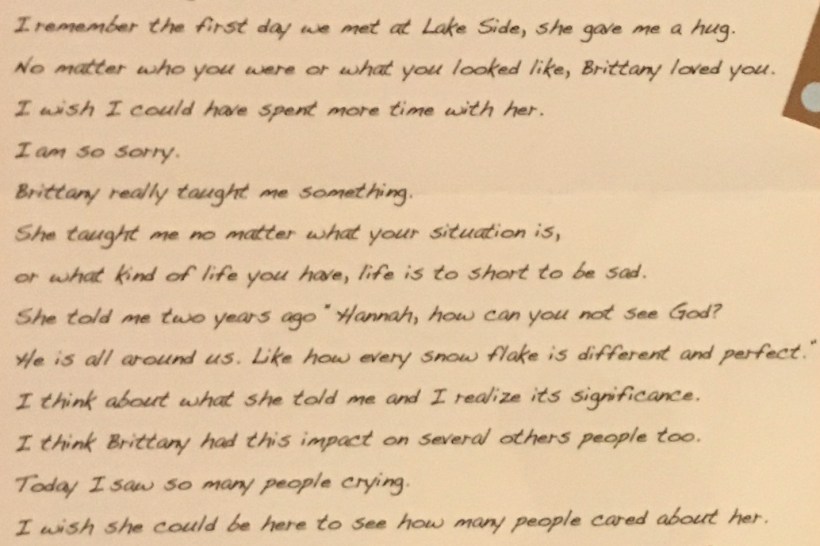 I remember the first day we met at Lake Side, she gave me a hug.
No matter who you were or what you looked like, Brittany loved you.
I wish I could have spent more time with her.
I am so sorry.
Brittany really taught me something.
She taught me no matter what your situation is,
or what kind of life you have, life is to short to be sad.
She told me two years ago "Hannah, how can you not see God?
He is all around us. Like how every snow flake is different and perfect."
I think about what she told me and I realize its significance.
I think Brittany had this impact on several others people too.
Today I saw so many people crying.
I wish she could be here to see how many people cared about her.